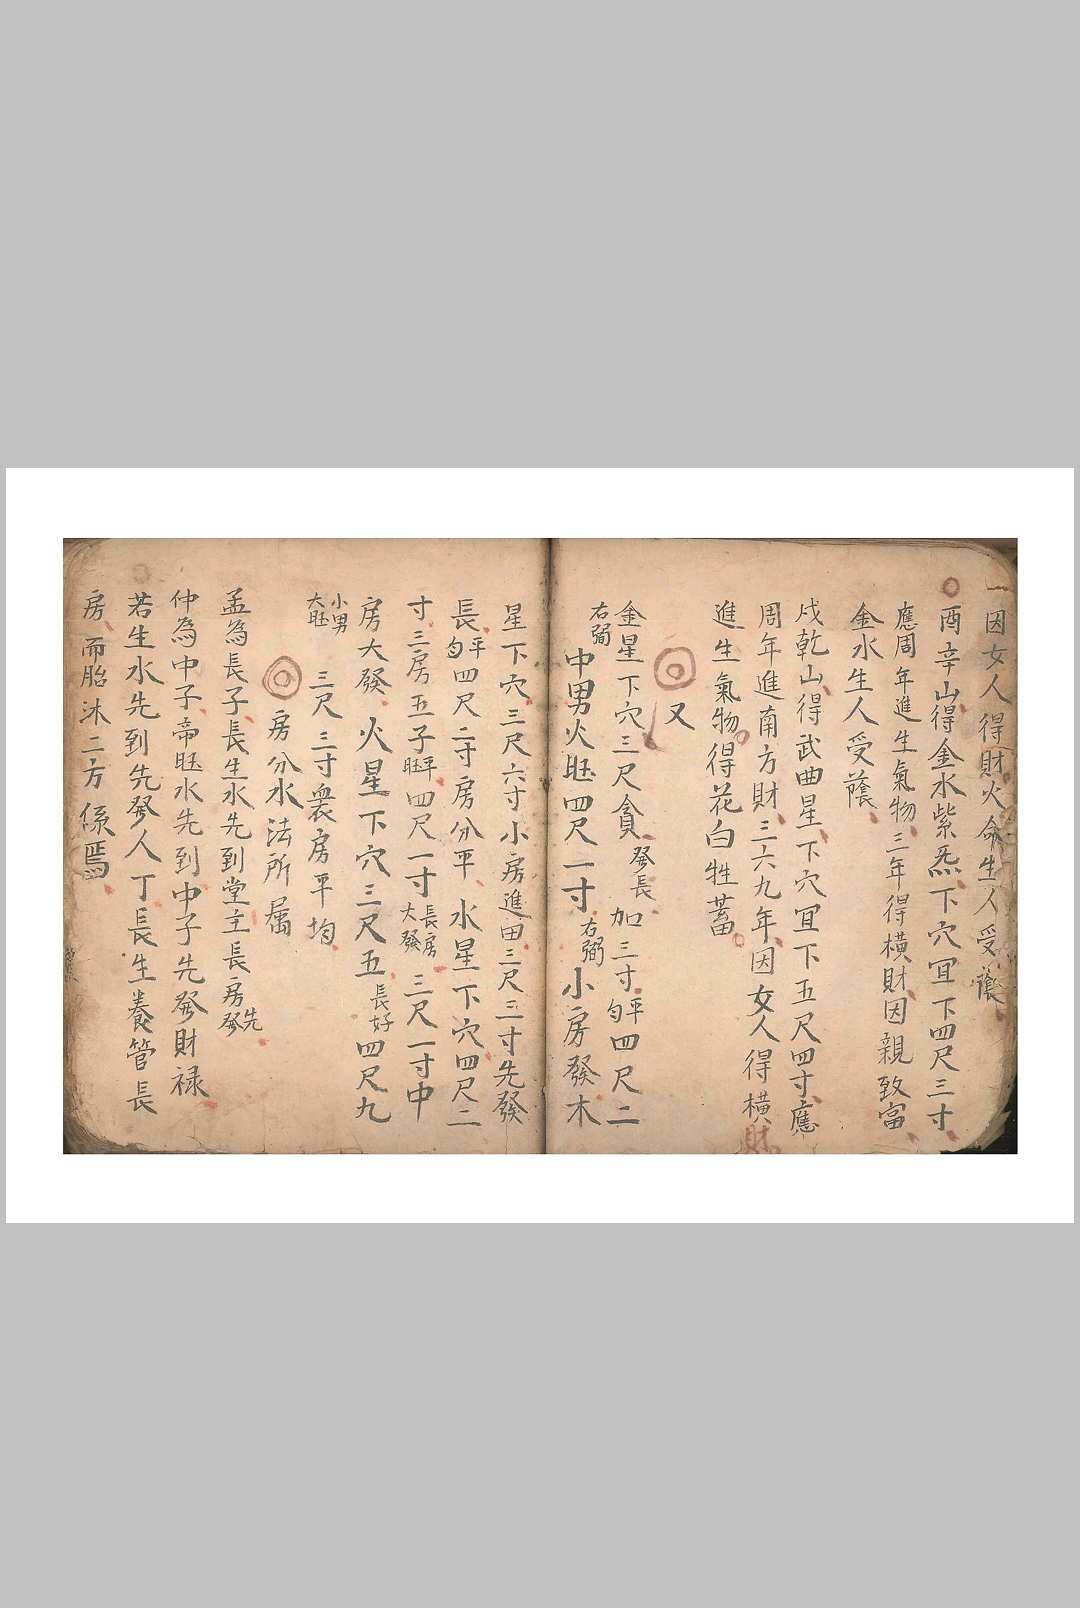 因女人得財火命生人受蔭
酉辛山得金水紫炁下穴宜下四尺三寸
應周年進生氣物三年得橫財因親致富
金水生人受蔭
戌乾山得武曲星下穴宜下五尺四寸應
周年進南方財三六九年因女人得橫財
進生氣物得花白牲蓄
又
金星下穴三尺貪發長加三寸平勻四尺二
右弼中男火旺四尺一寸右弼小房發木
星下穴三尺六寸小房進田三尺三寸先發
長平勻四尺二寸房分平水星下穴四尺二
寸三房五子平旺四尺一寸長房大發三尺一寸中
房大發火星下穴三尺五長好四尺九
小男大旺三尺三寸衆房平均
房分水法所屬
孟為長子長生水先到堂主長房先發
仲為中子帝旺水先到中子先發財祿
若生水先到先發人丁長生養管長
房而胎沐二方係焉